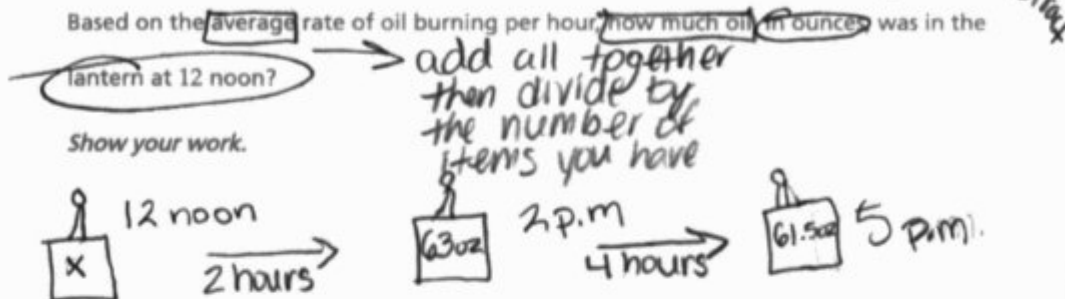 Based on the average rate of oil burning per hour, how much oil, in ounces, was in the
lantern at 12 noon?
add all together
then divide by
the number of
items you have
Show your work.
12 noon
x
2 hours
63oz
2 p.m
4 hours
61.5oz
5 p.m.